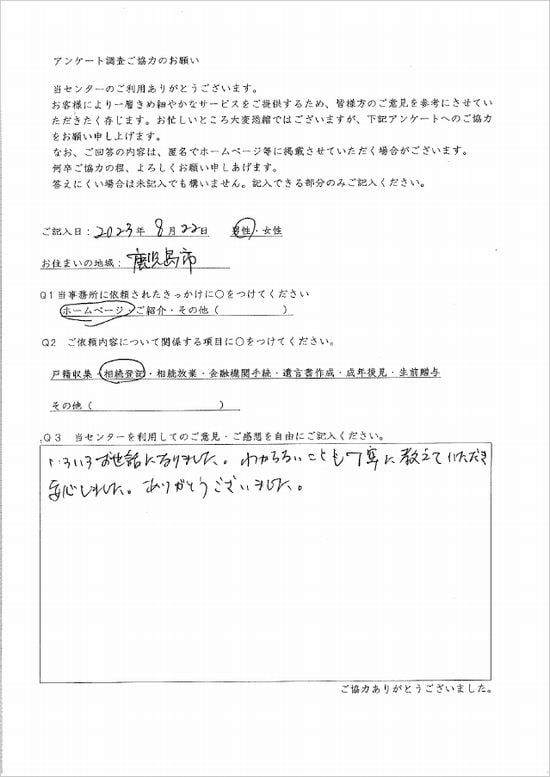 アンケート調査ご協力のお願い
当センターのご利用ありがとうございます。
お客様により一層きめ細やかなサービスをご提供するため、皆様方のご意見を参考にさせてい
ただきたく存じます。お忙しいところ大変恐縮ではございますが、下記アンケートへのご協力
をお願い申し上げます。
なお、ご回答の内容は、匿名でホームページ等に掲載させていただく場合がございます。
何卒ご協力の程、よろしくお願い申しあげます。
答えにくい場合は未記入でも構いません。記入できる部分のみご記入ください。
ご記入日：2023年 8月22日 男性・女性
お住まいの地域：鹿児島市
Q1当事務所に依頼されたきっかけに〇をつけてください
ホームページ・ご紹介・その他（ ）
Q2 ご依頼内容について関係する項目に〇をつけてください。
戸籍収集・相続登記・相続放棄・金融機関手続・遺言書作成・成年後見・生前贈与
その他（ ）
Q3 当センターを利用してのご意見・ご感想を自由にご記入ください。
いろいろお世話になりました。わからないことも丁寧に教えていただき
安心しました。ありがとうございました。
ご協力ありがとうございました。